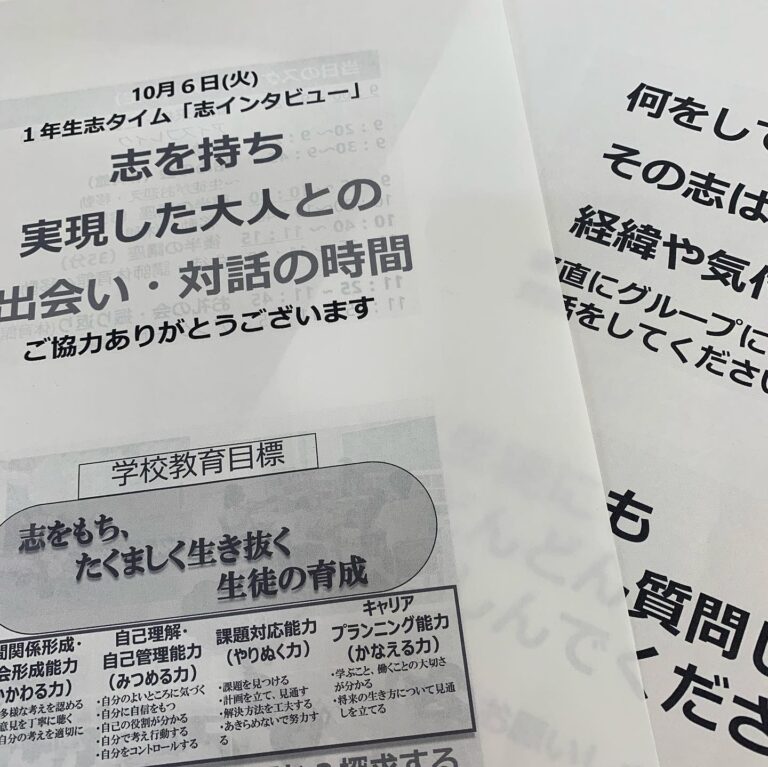 10月６日(火)
１年生志タイム「志インタビュー」
志を持ち
実現した大人との
出会い・対話の時間
ご協力ありがとうございます
学校教育目標
志をもち、
たくましく生き抜く
生徒の育成
間関係形成・
会形成能力
かかわる力）
多様な考えを認める
意見を丁寧に聴く
自分の考えを適切に
自己理解・
自己管理能力
（みつめる力）
・自分のよいところに気づく
・自分に自信をもつ
・自己の役割が分かる
・自分で考え行動する
・自分をコントロールする
課題対応能力
（やりぬく力）
・課題を見つける
・計画を立て、見通す
・解決方法を工夫する
・あきらめないで努力す
る
キャリア
プランニング能力
（かなえる力）
・学ぶこと、働くことの大切さ
が分かる
・将来の生き方について見通
しを立てる
探求する
何をして
その志は
経緯や気付
直にグループに
話をしてください
も
質問し
くださ